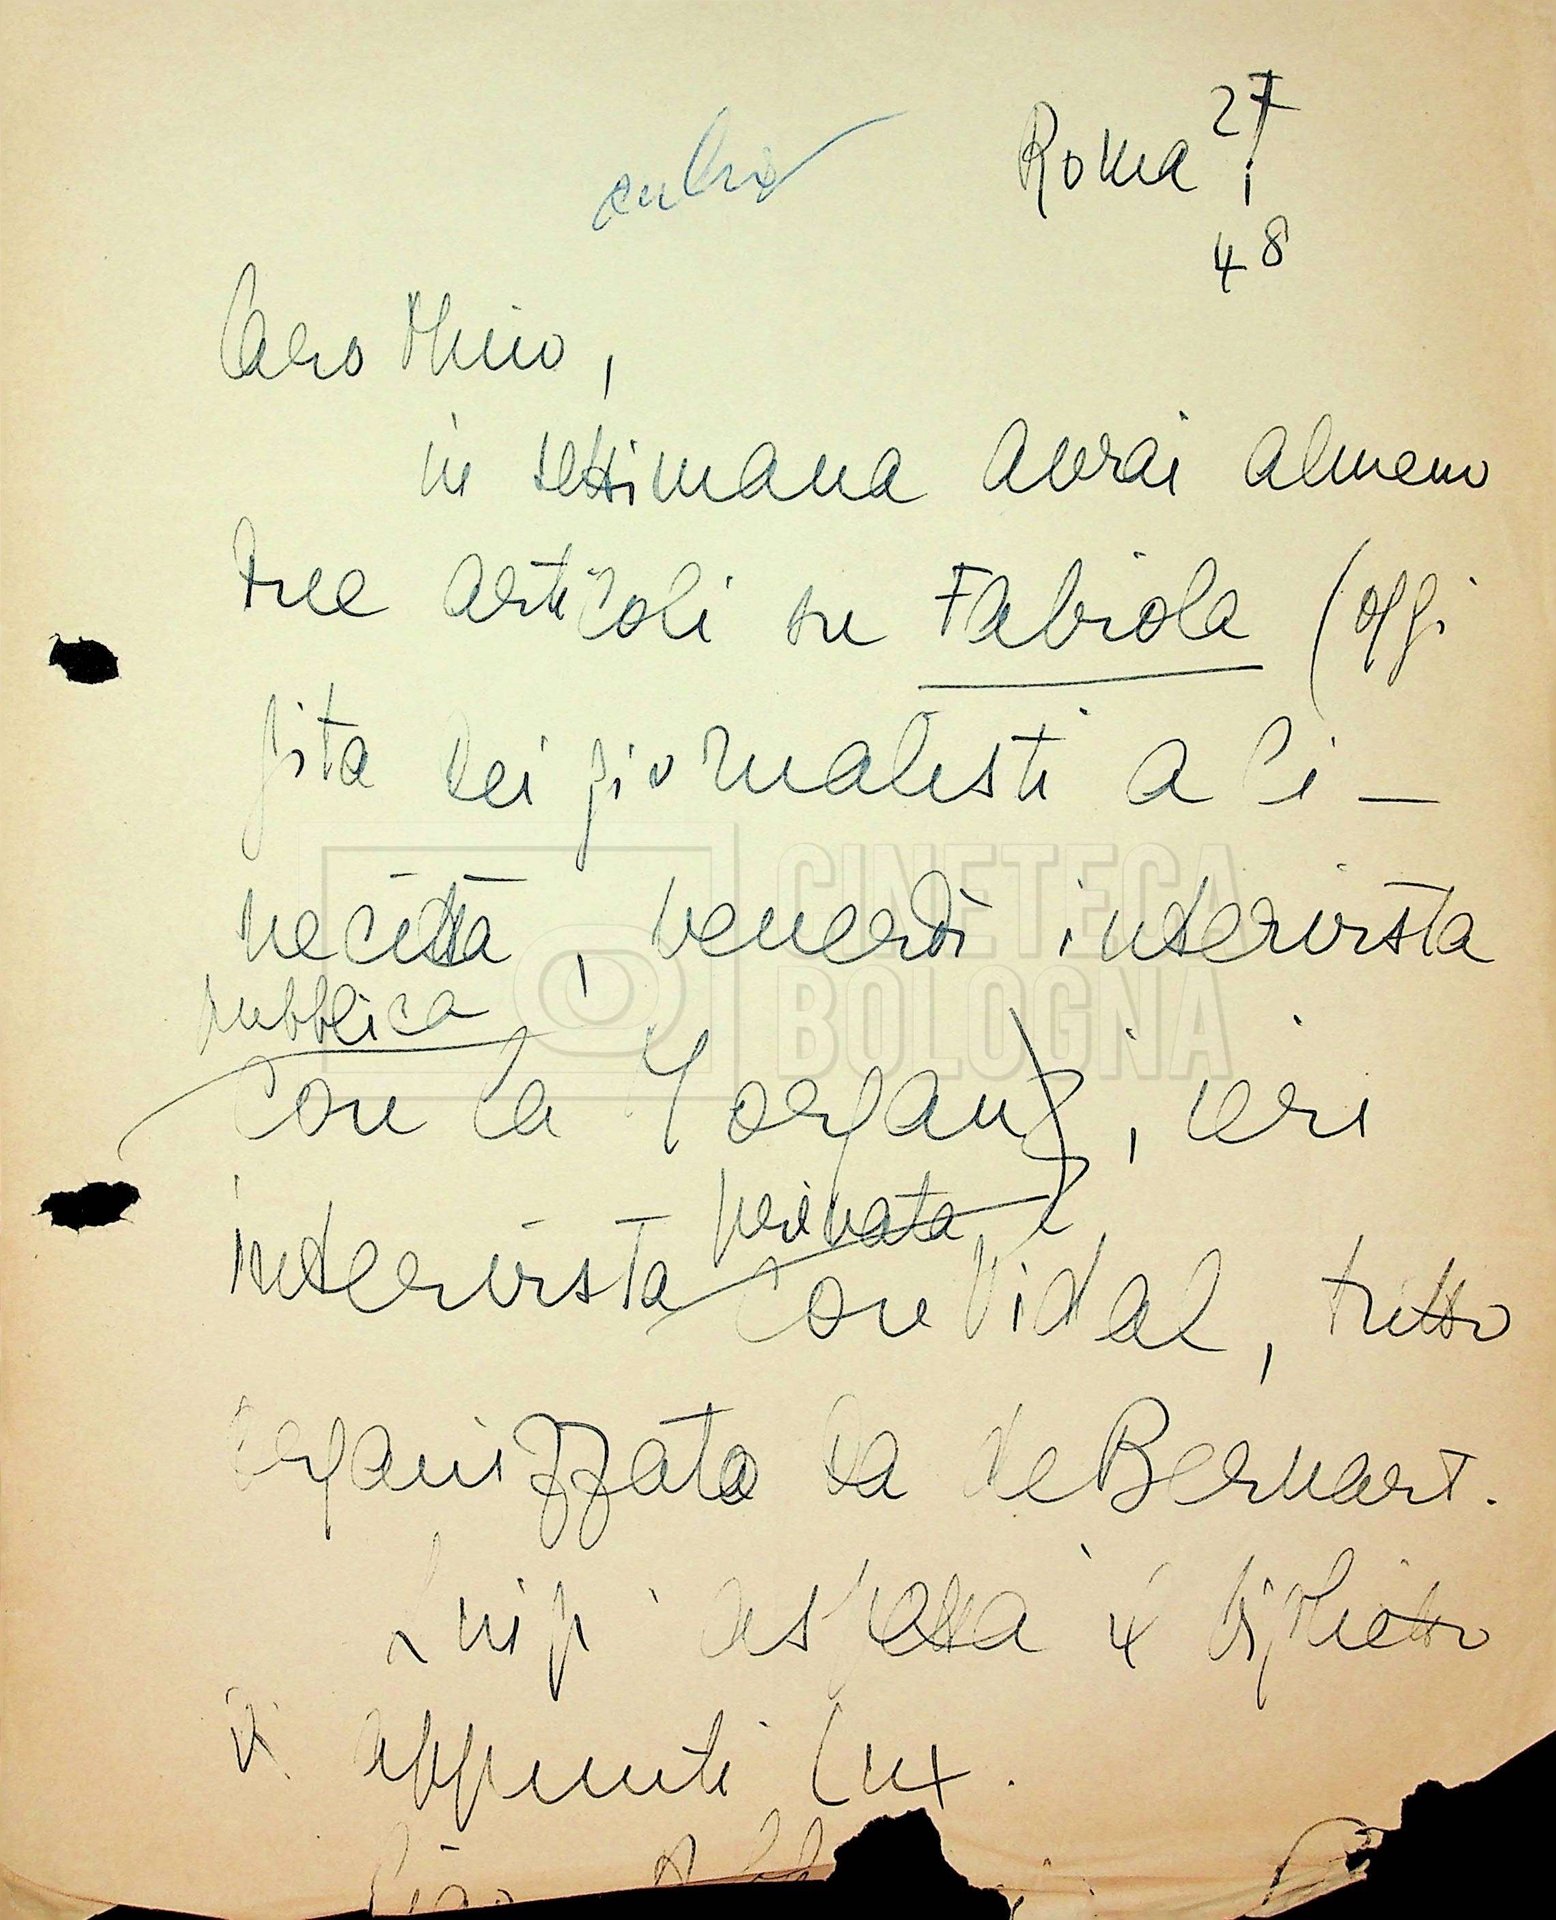 Roma 27
1
48
Caro Mino,
in settimana avrai almeno
tre articoli su Fabiola (oggi
gita dei giornalisti a Ci-
necittà, venerdì intervista
pubblica
con la Morgan), ieri
intervista privata
con Vidal, tutto
organizzato da de Bernart.
Luigi aspetta il biglietto
di appunti Lux.
CINETECA
BOLOGNA